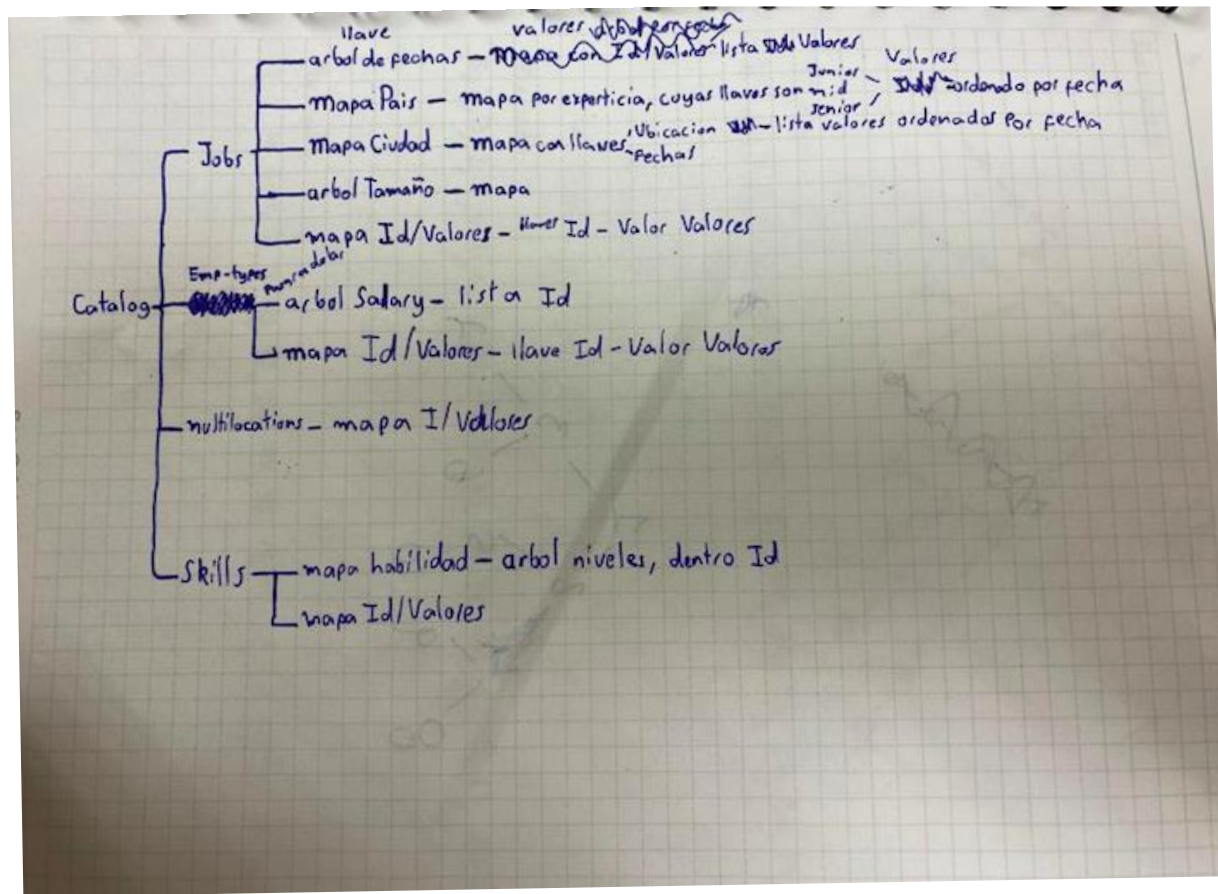 llave valores
arbol de fechas - lista Valores
Mapa Pais - mapa por experticia, cuyas llaves son Junior mid senior Valores ordenado por fecha
Jobs Mapa Ciudad - mapa con llaves Ubicacion fechas - lista valores ordenados por fecha
arbol Tamaño - mapa
mapa Id/Valores - llaves Id - Valor Valores
Catalog Emp-types arbol Salary - lista Id
mapa Id/Valores - llave Id - Valor Valores
multilocations - mapa I/Valores
Skills mapa habilidad - arbol niveles, dentro Id
mapa Id/Valores